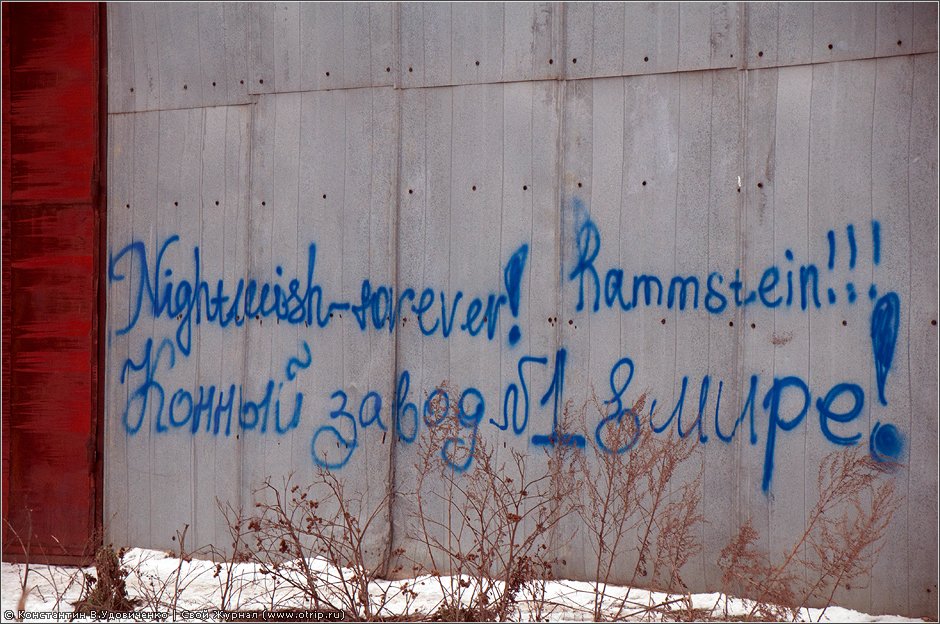 Nightwish-forever! Rammstein!!!
Конный завод №1 в мире!
© Константин В.Удовиченко | Свой Журнал (www.otrip.ru)